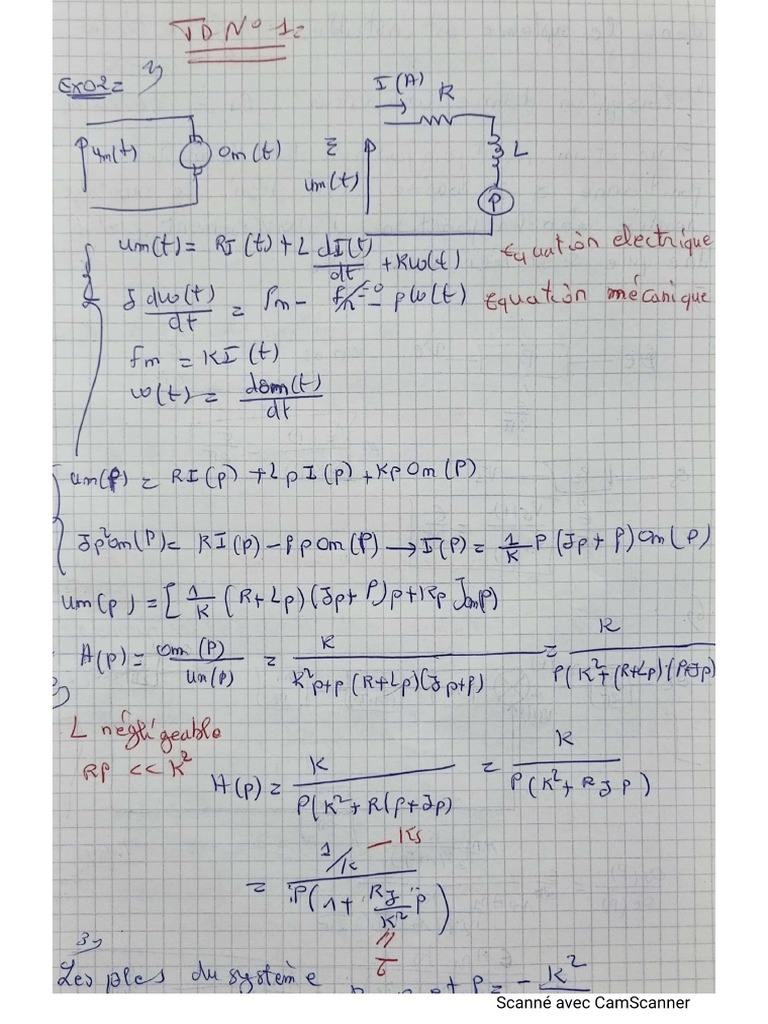 TD N° 1:
Exo2 = 1)
I(A)
R
um(t)
θm(t)
≡
um(t)
L
P
um(t) = RI(t) + L dI(t)/dt + Kω(t) Equation electrique
J dω(t)/dt = Γm - - ρω(t) Equation mécanique
Γm = KI(t)
ω(t) = dθm(t)/dt
um(p) = RI(p) + LpI(p) + Kpθm(p)
Jp²θm(p) = KI(p) - ρpθm(p) → I(p) = 1/K p(Jp + ρ)θm(p)
um(p) = [1/K (R+Lp)(Jp+ρ)p + Kp]θm(p)
H(p) = θm(p)/um(p) = K/(K²p+p(R+Lp)(Jp+ρ)) = K/(p(K²+(R+Lp)(ρ+Jp)
L négligeable
Rρ << K²
H(p) = K/(p(K²+R(ρ+Jp) = K/(p(K²+RJp)
= 1/K/(p(1+ RJ/K² p)
Ks
τ
3)
Les ples du système
et p = - K²
Scanné avec CamScanner